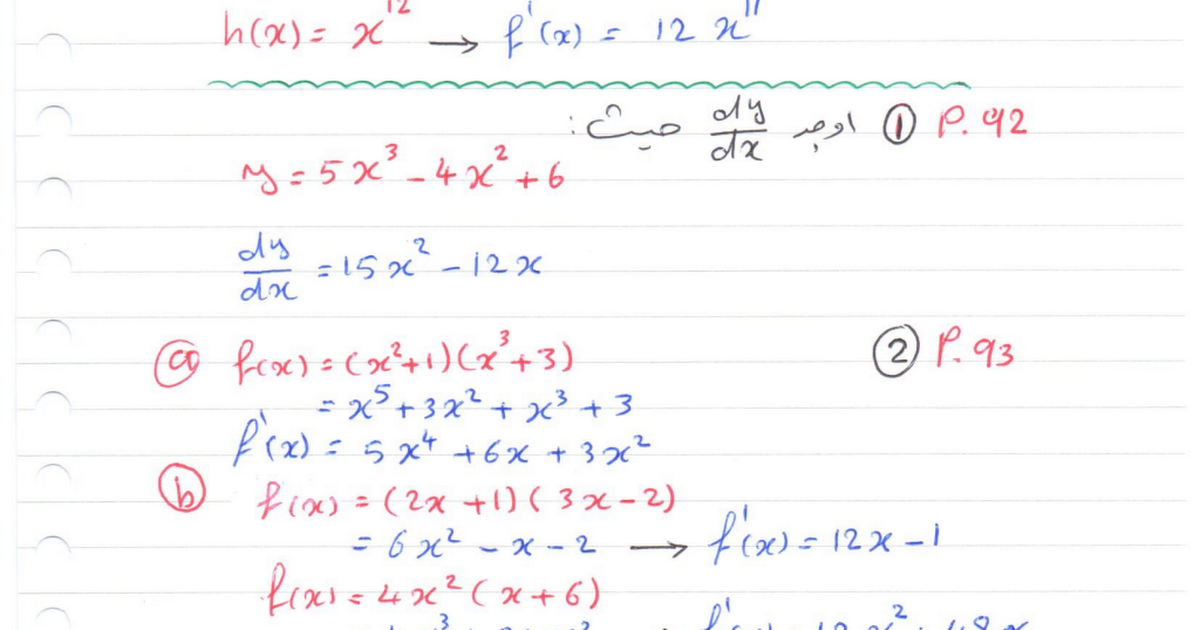 h(x) = x¹² → f'(x) = 12 x¹¹
P. 92 ① اوجد dy/dx حيث:
y = 5x³ - 4x² + 6
dy/dx = 15x² - 12x
P. 93 ②
ⓐ f(x) = (x²+1)(x³+3)
= x⁵ + 3x² + x³ + 3
f'(x) = 5x⁴ + 6x + 3x²
ⓑ f(x) = (2x +1)(3x-2)
= 6x² - x - 2 → f'(x) = 12x - 1
f(x) = 4x²(x+6)